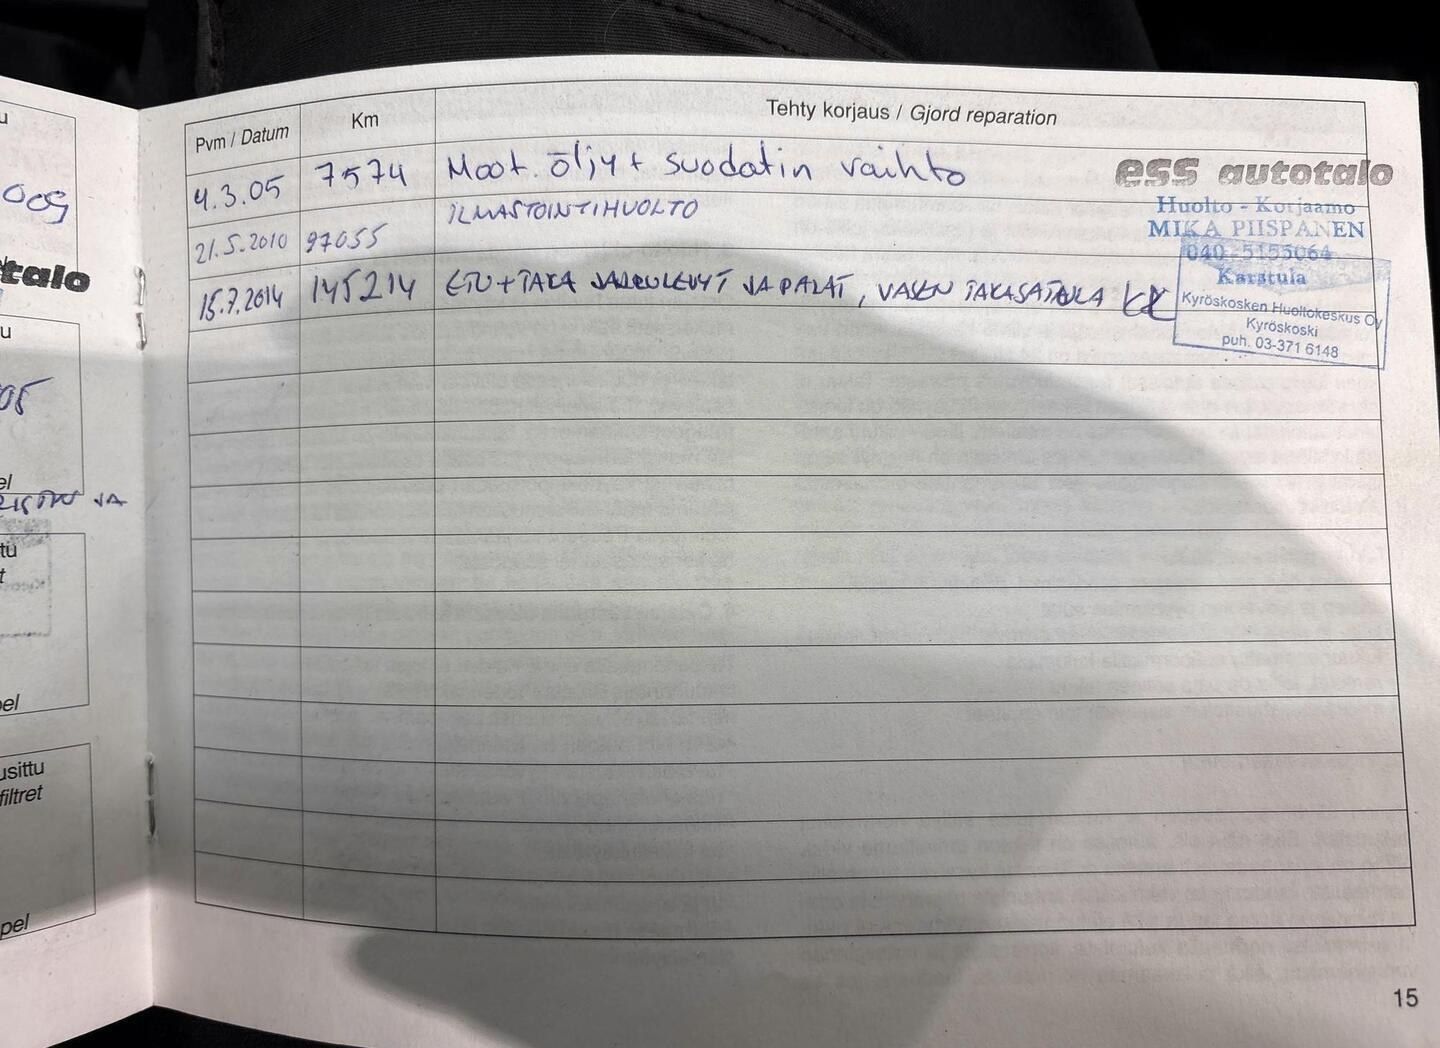 u
009
talo
u
05
el
JA
tu
t
el
usittu
filtret
pel
Pvm / Datum Km Tehty korjaus / Gjord reparation
4.3.05 7574 Moot. öljy + suodatin vaihto
ess autotalo
21.5.2010 97055 ILMASTOINTIHUOLTO
Huolto - Korjaamo
MIKA PIISPANEN
040-5155064
Karstula
15.7.2014 145214 ETU+TAKA JARRULEVYT JA PALAT, VASEN TAKASATULA
Kyröskosken Huoltokeskus Oy
Kyröskoski
puh. 03-371 6148
15